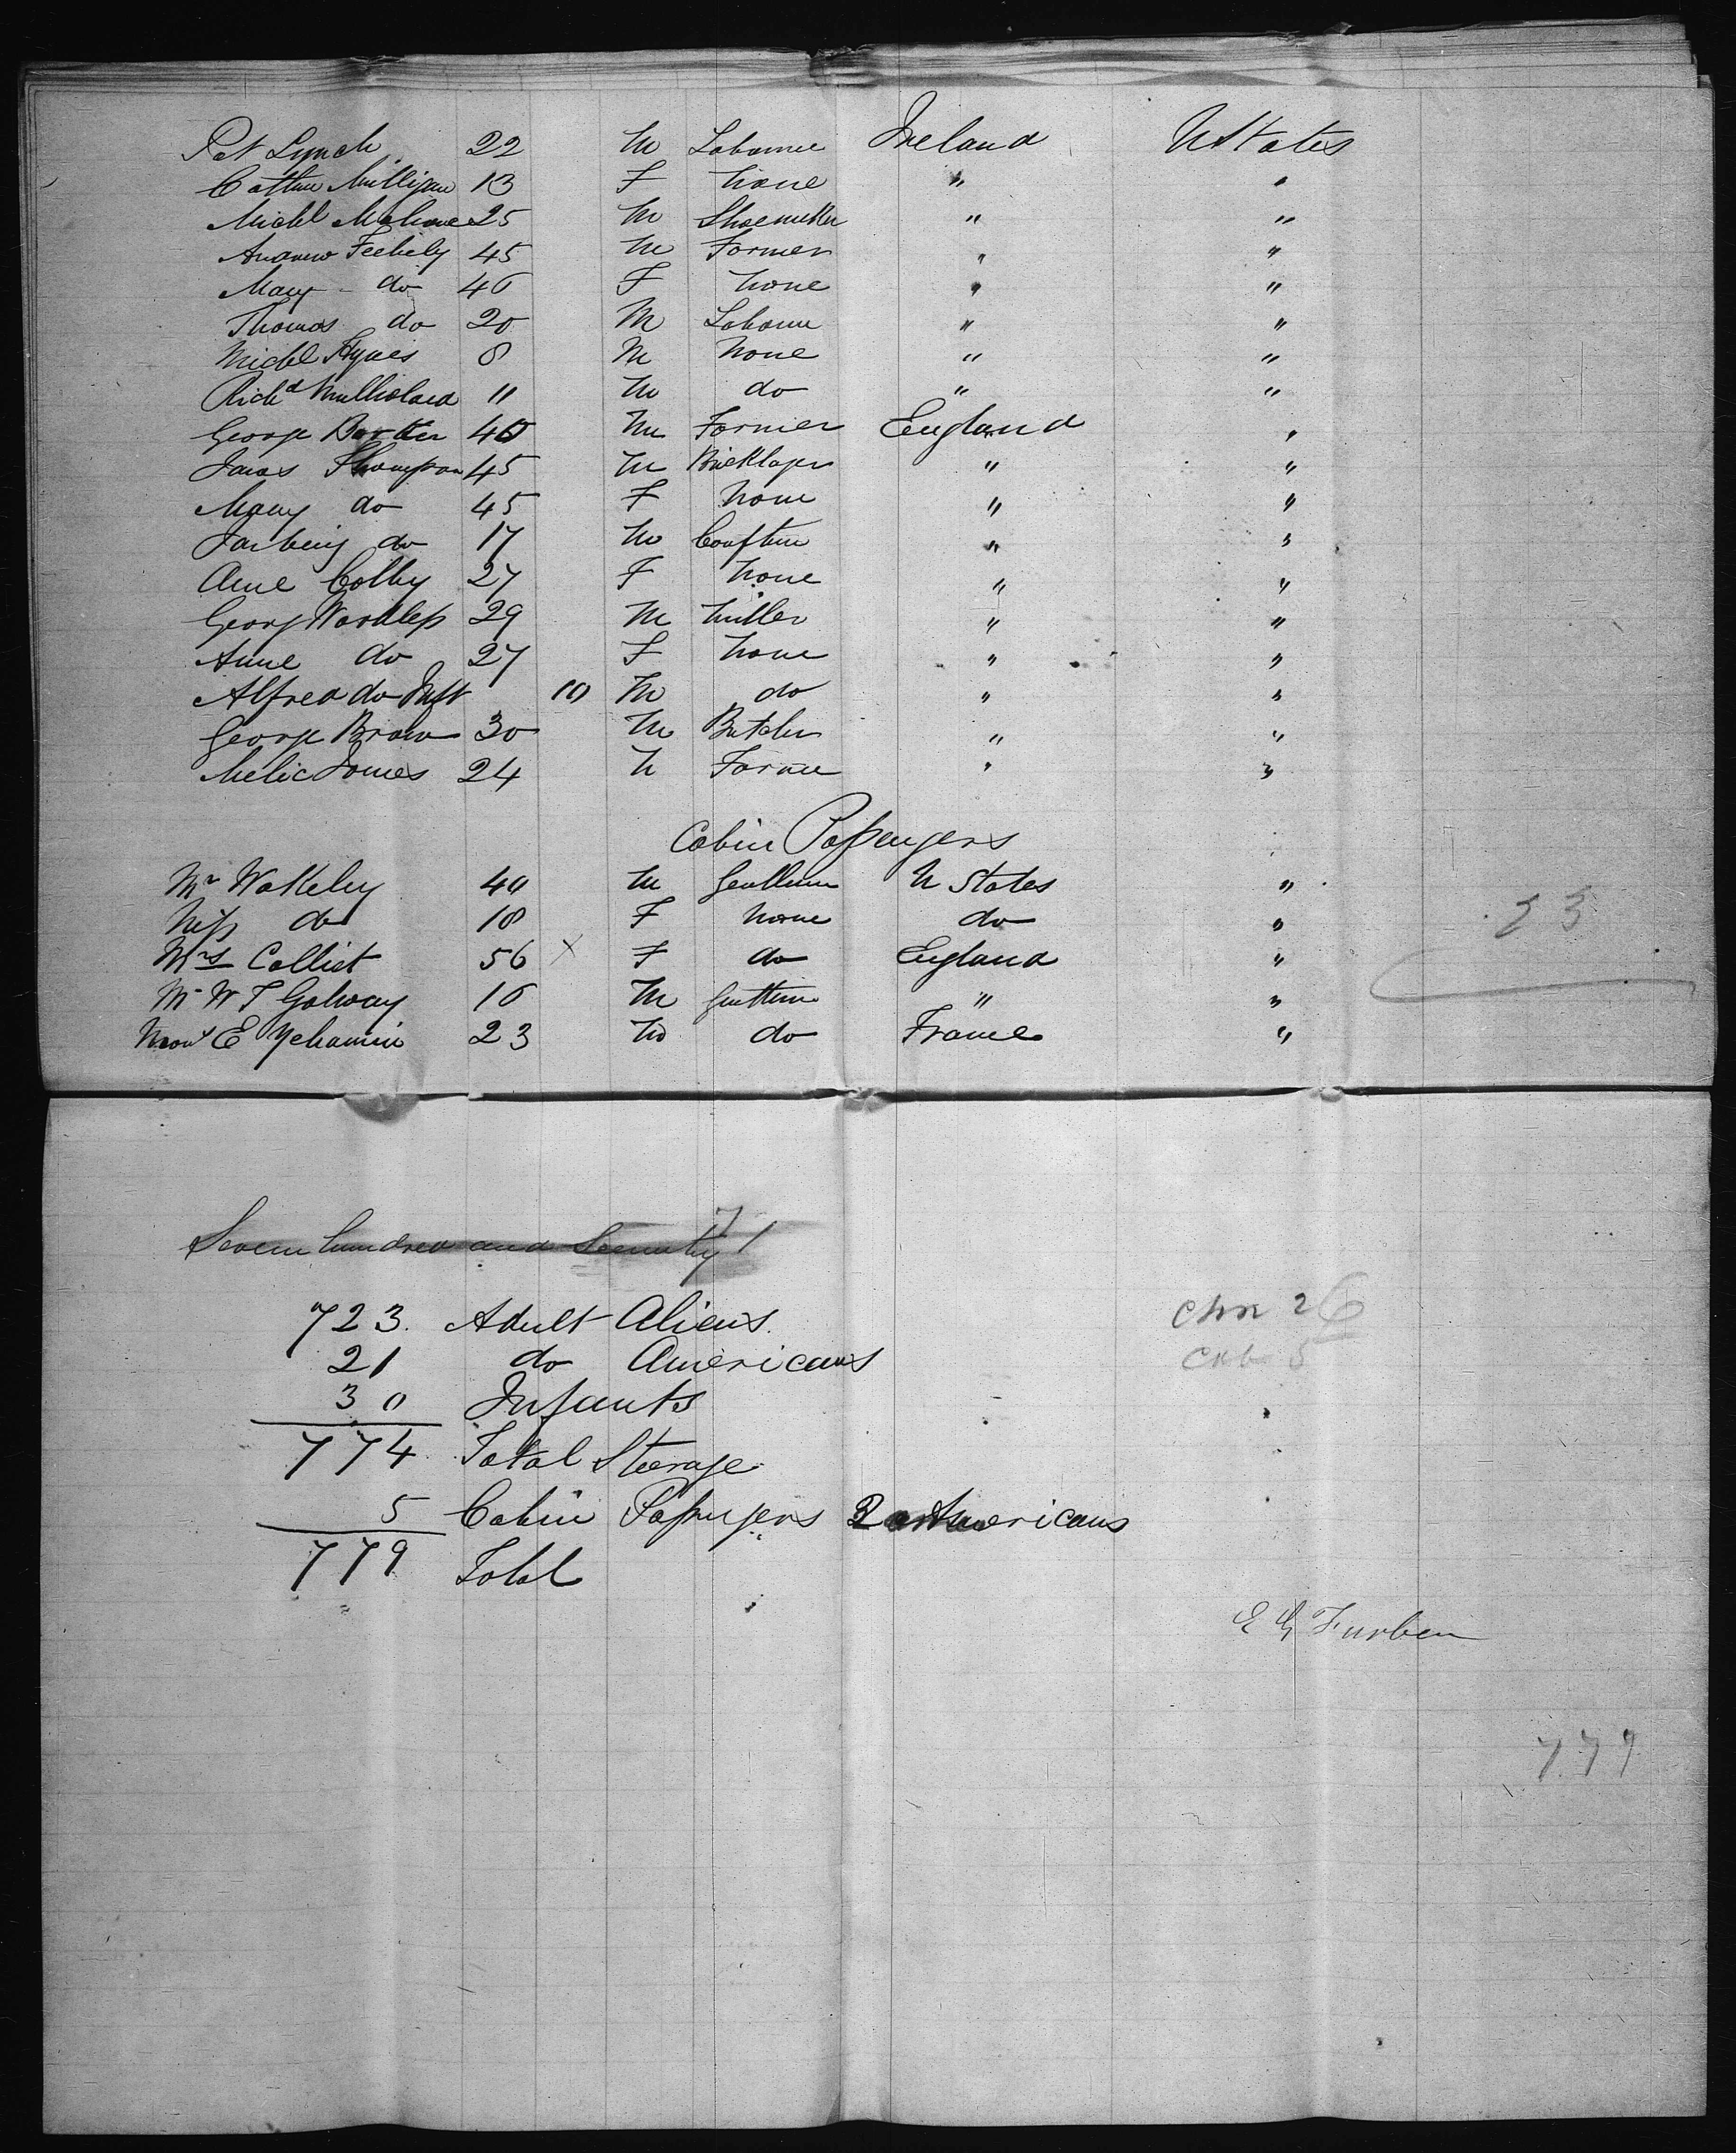 Pat Lynch 22 M Labourer Ireland U States
Cathne Mulligan 13 F None " "
Michl Mahone 25 M Shoemaker " "
Andrew Feehily 45 M Farmer " "
Mary do 46 F None " "
Thomas do 20 M Labourer " "
Michl Hynes 8 M None " "
Richd Mulholand 11 M do " "
George Barker 40 M Farmer England "
James Thompson 45 M Bricklayer " "
Mary do 45 F None " "
do 17 M " "
Anne Colby 27 F None " "
George Wardless 29 M Miller " "
Anne do 27 F None " "
Alfred do Inft 10 M do " "
George Brown 30 M Butcher " "
James 24 M Farmer " "
Cabin Passengers
Mr Wakeley 40 M Gentleman U States "
Miss do 18 F None do "
Mrs Collict 56 x F do England "
23
Mr W T Galway 16 M Gentleman " "
E 23 M do France "
Seven hundred and Seventy 1
7
723. Adult Aliens.
21 do Americans
30 Infants
774 Total Steerage
5 Cabin Passengers 2 Americans
779 Total
26
5
E G Furber
779